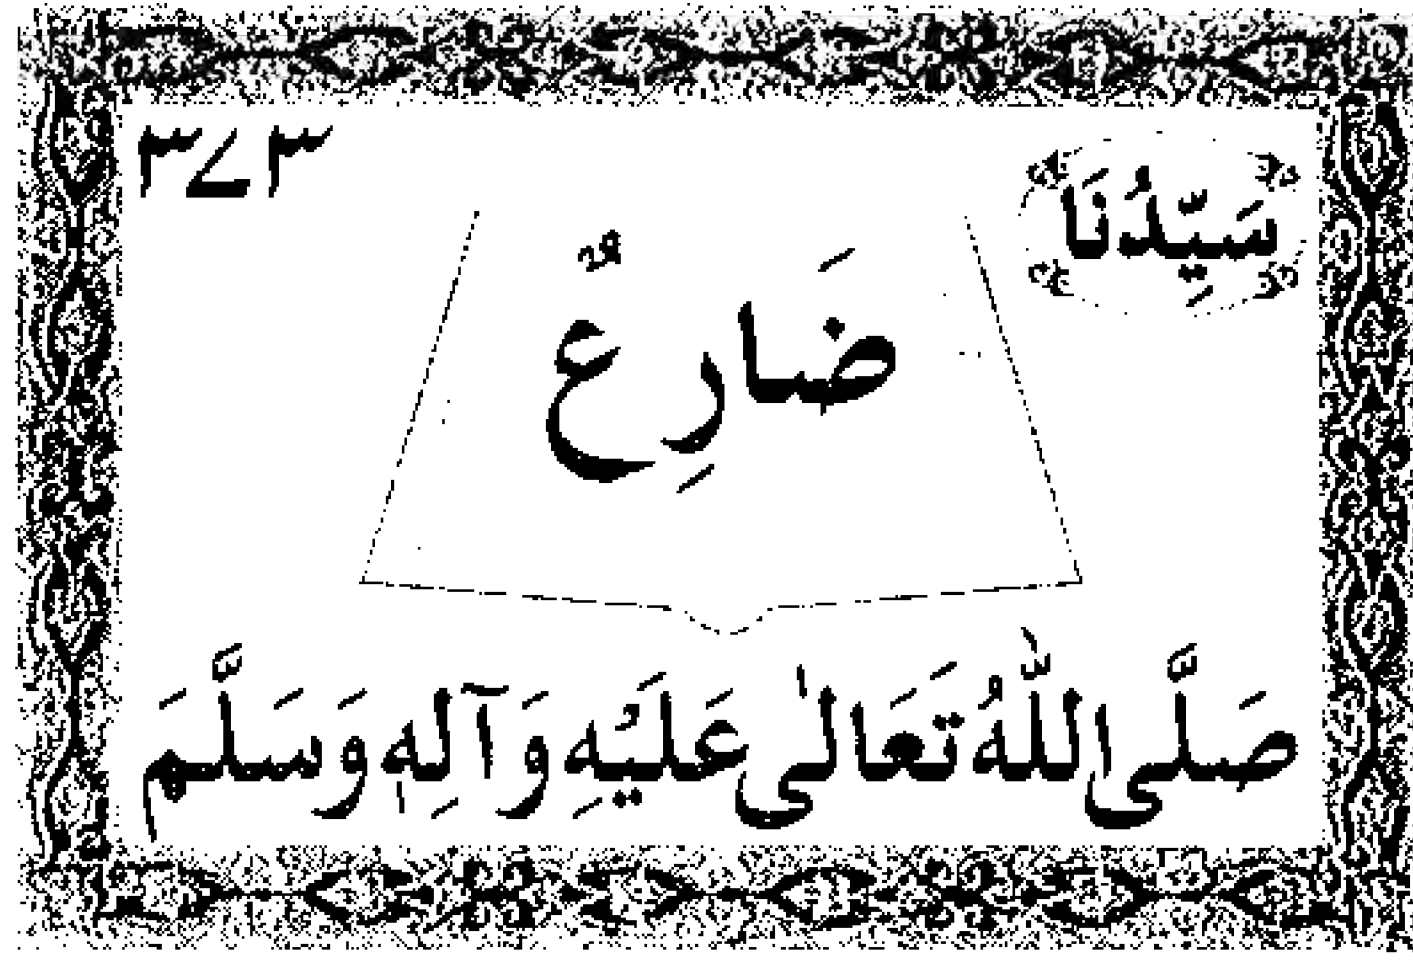 سَيِّدُنَا ۳۷۳
ضَارِعٌ
صَلَّى اللّٰهُ تَعَالٰى عَلَيْهِ وَآلِهٖ وَسَلَّمَ